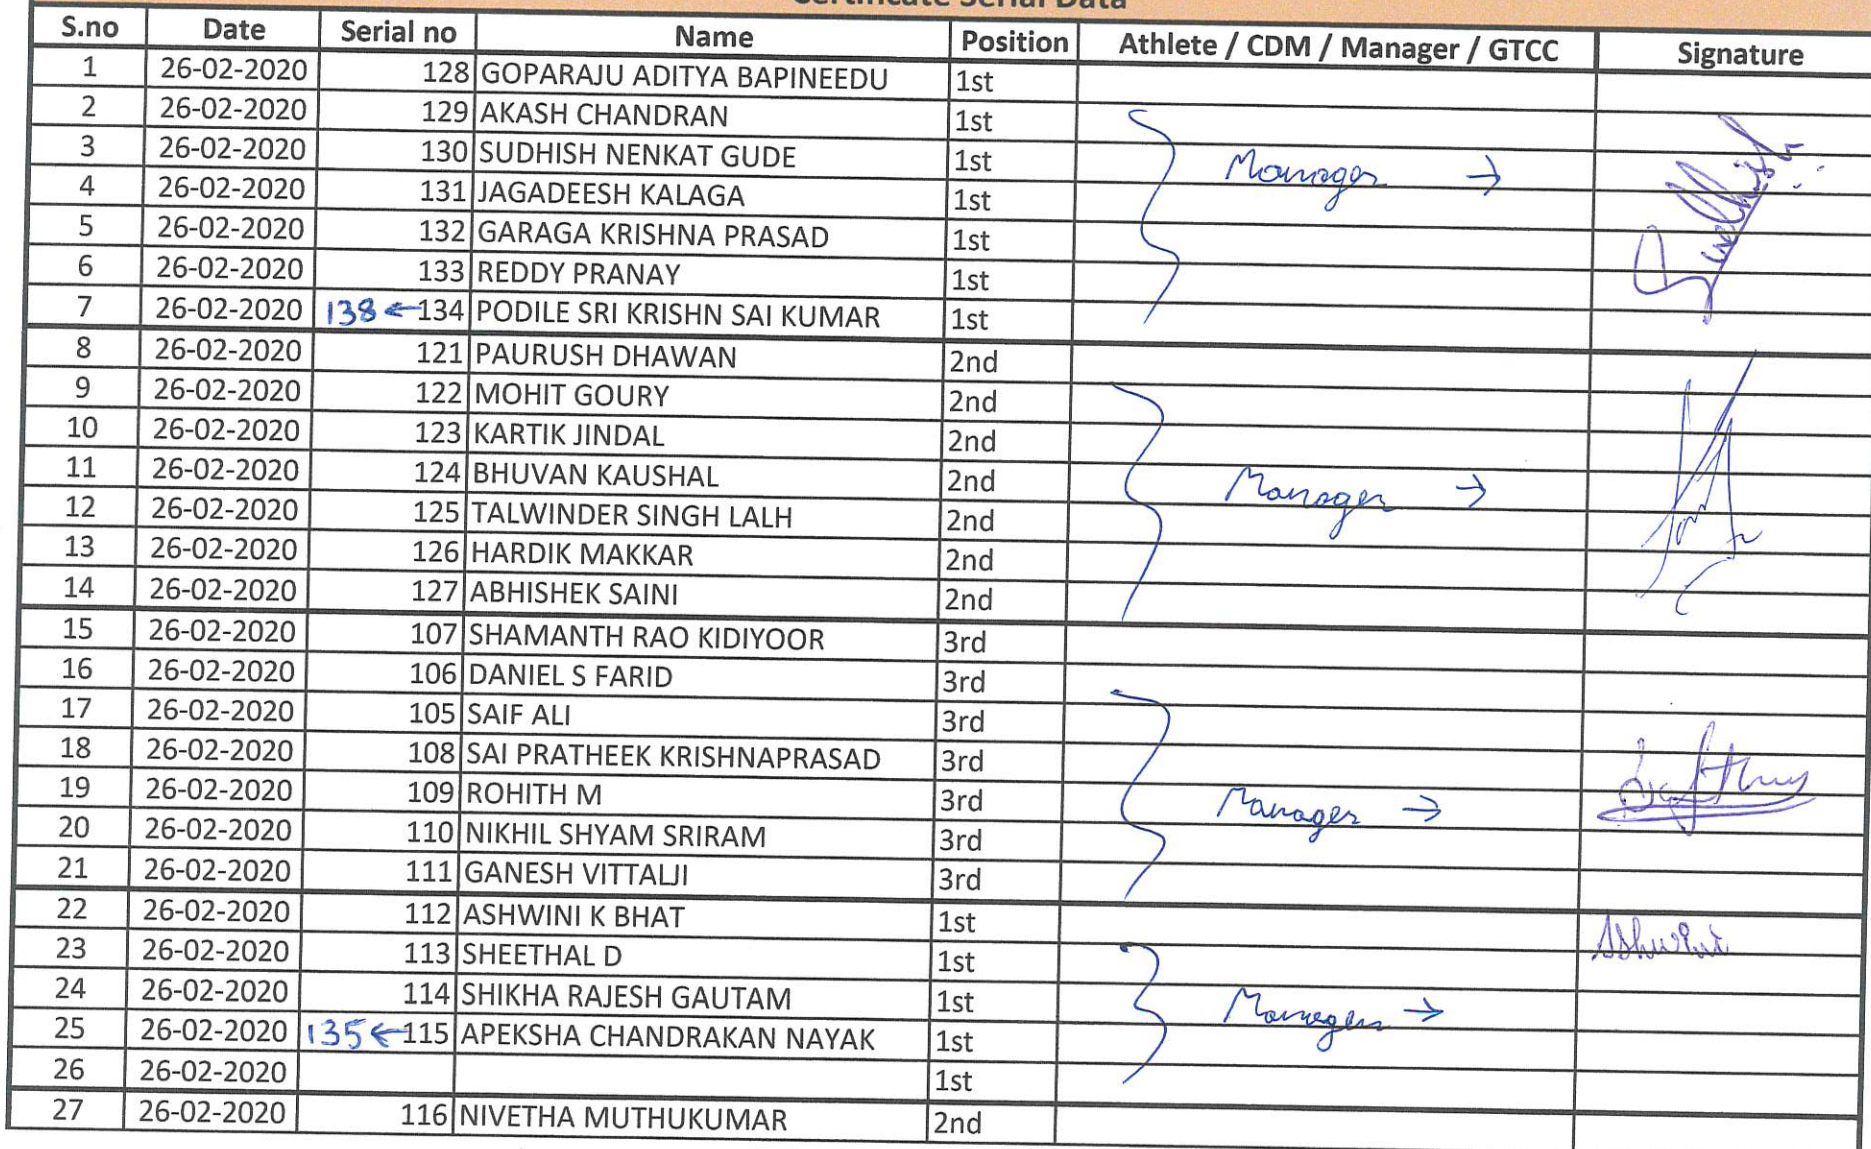 Certificate Serial Data
S.no Date Serial no Name Position Athlete / CDM / Manager / GTCC Signature
1 26-02-2020 128 GOPARAJU ADITYA BAPINEEDU 1st
2 26-02-2020 129 AKASH CHANDRAN 1st
3 26-02-2020 130 SUDHISH NENKAT GUDE 1st Manager → Sudhish
4 26-02-2020 131 JAGADEESH KALAGA 1st
5 26-02-2020 132 GARAGA KRISHNA PRASAD 1st
6 26-02-2020 133 REDDY PRANAY 1st
7 26-02-2020 138 ← 134 PODILE SRI KRISHN SAI KUMAR 1st
8 26-02-2020 121 PAURUSH DHAWAN 2nd
9 26-02-2020 122 MOHIT GOURY 2nd
10 26-02-2020 123 KARTIK JINDAL 2nd
11 26-02-2020 124 BHUVAN KAUSHAL 2nd Manager →
12 26-02-2020 125 TALWINDER SINGH LALH 2nd
13 26-02-2020 126 HARDIK MAKKAR 2nd
14 26-02-2020 127 ABHISHEK SAINI 2nd
15 26-02-2020 107 SHAMANTH RAO KIDIYOOR 3rd
16 26-02-2020 106 DANIEL S FARID 3rd
17 26-02-2020 105 SAIF ALI 3rd
18 26-02-2020 108 SAI PRATHEEK KRISHNAPRASAD 3rd
19 26-02-2020 109 ROHITH M 3rd Manager →
20 26-02-2020 110 NIKHIL SHYAM SRIRAM 3rd
21 26-02-2020 111 GANESH VITTALJI 3rd
22 26-02-2020 112 ASHWINI K BHAT 1st Ashwini
23 26-02-2020 113 SHEETHAL D 1st
24 26-02-2020 114 SHIKHA RAJESH GAUTAM 1st Manager →
25 26-02-2020 135 ← 115 APEKSHA CHANDRAKAN NAYAK 1st
26 26-02-2020 1st
27 26-02-2020 116 NIVETHA MUTHUKUMAR 2nd